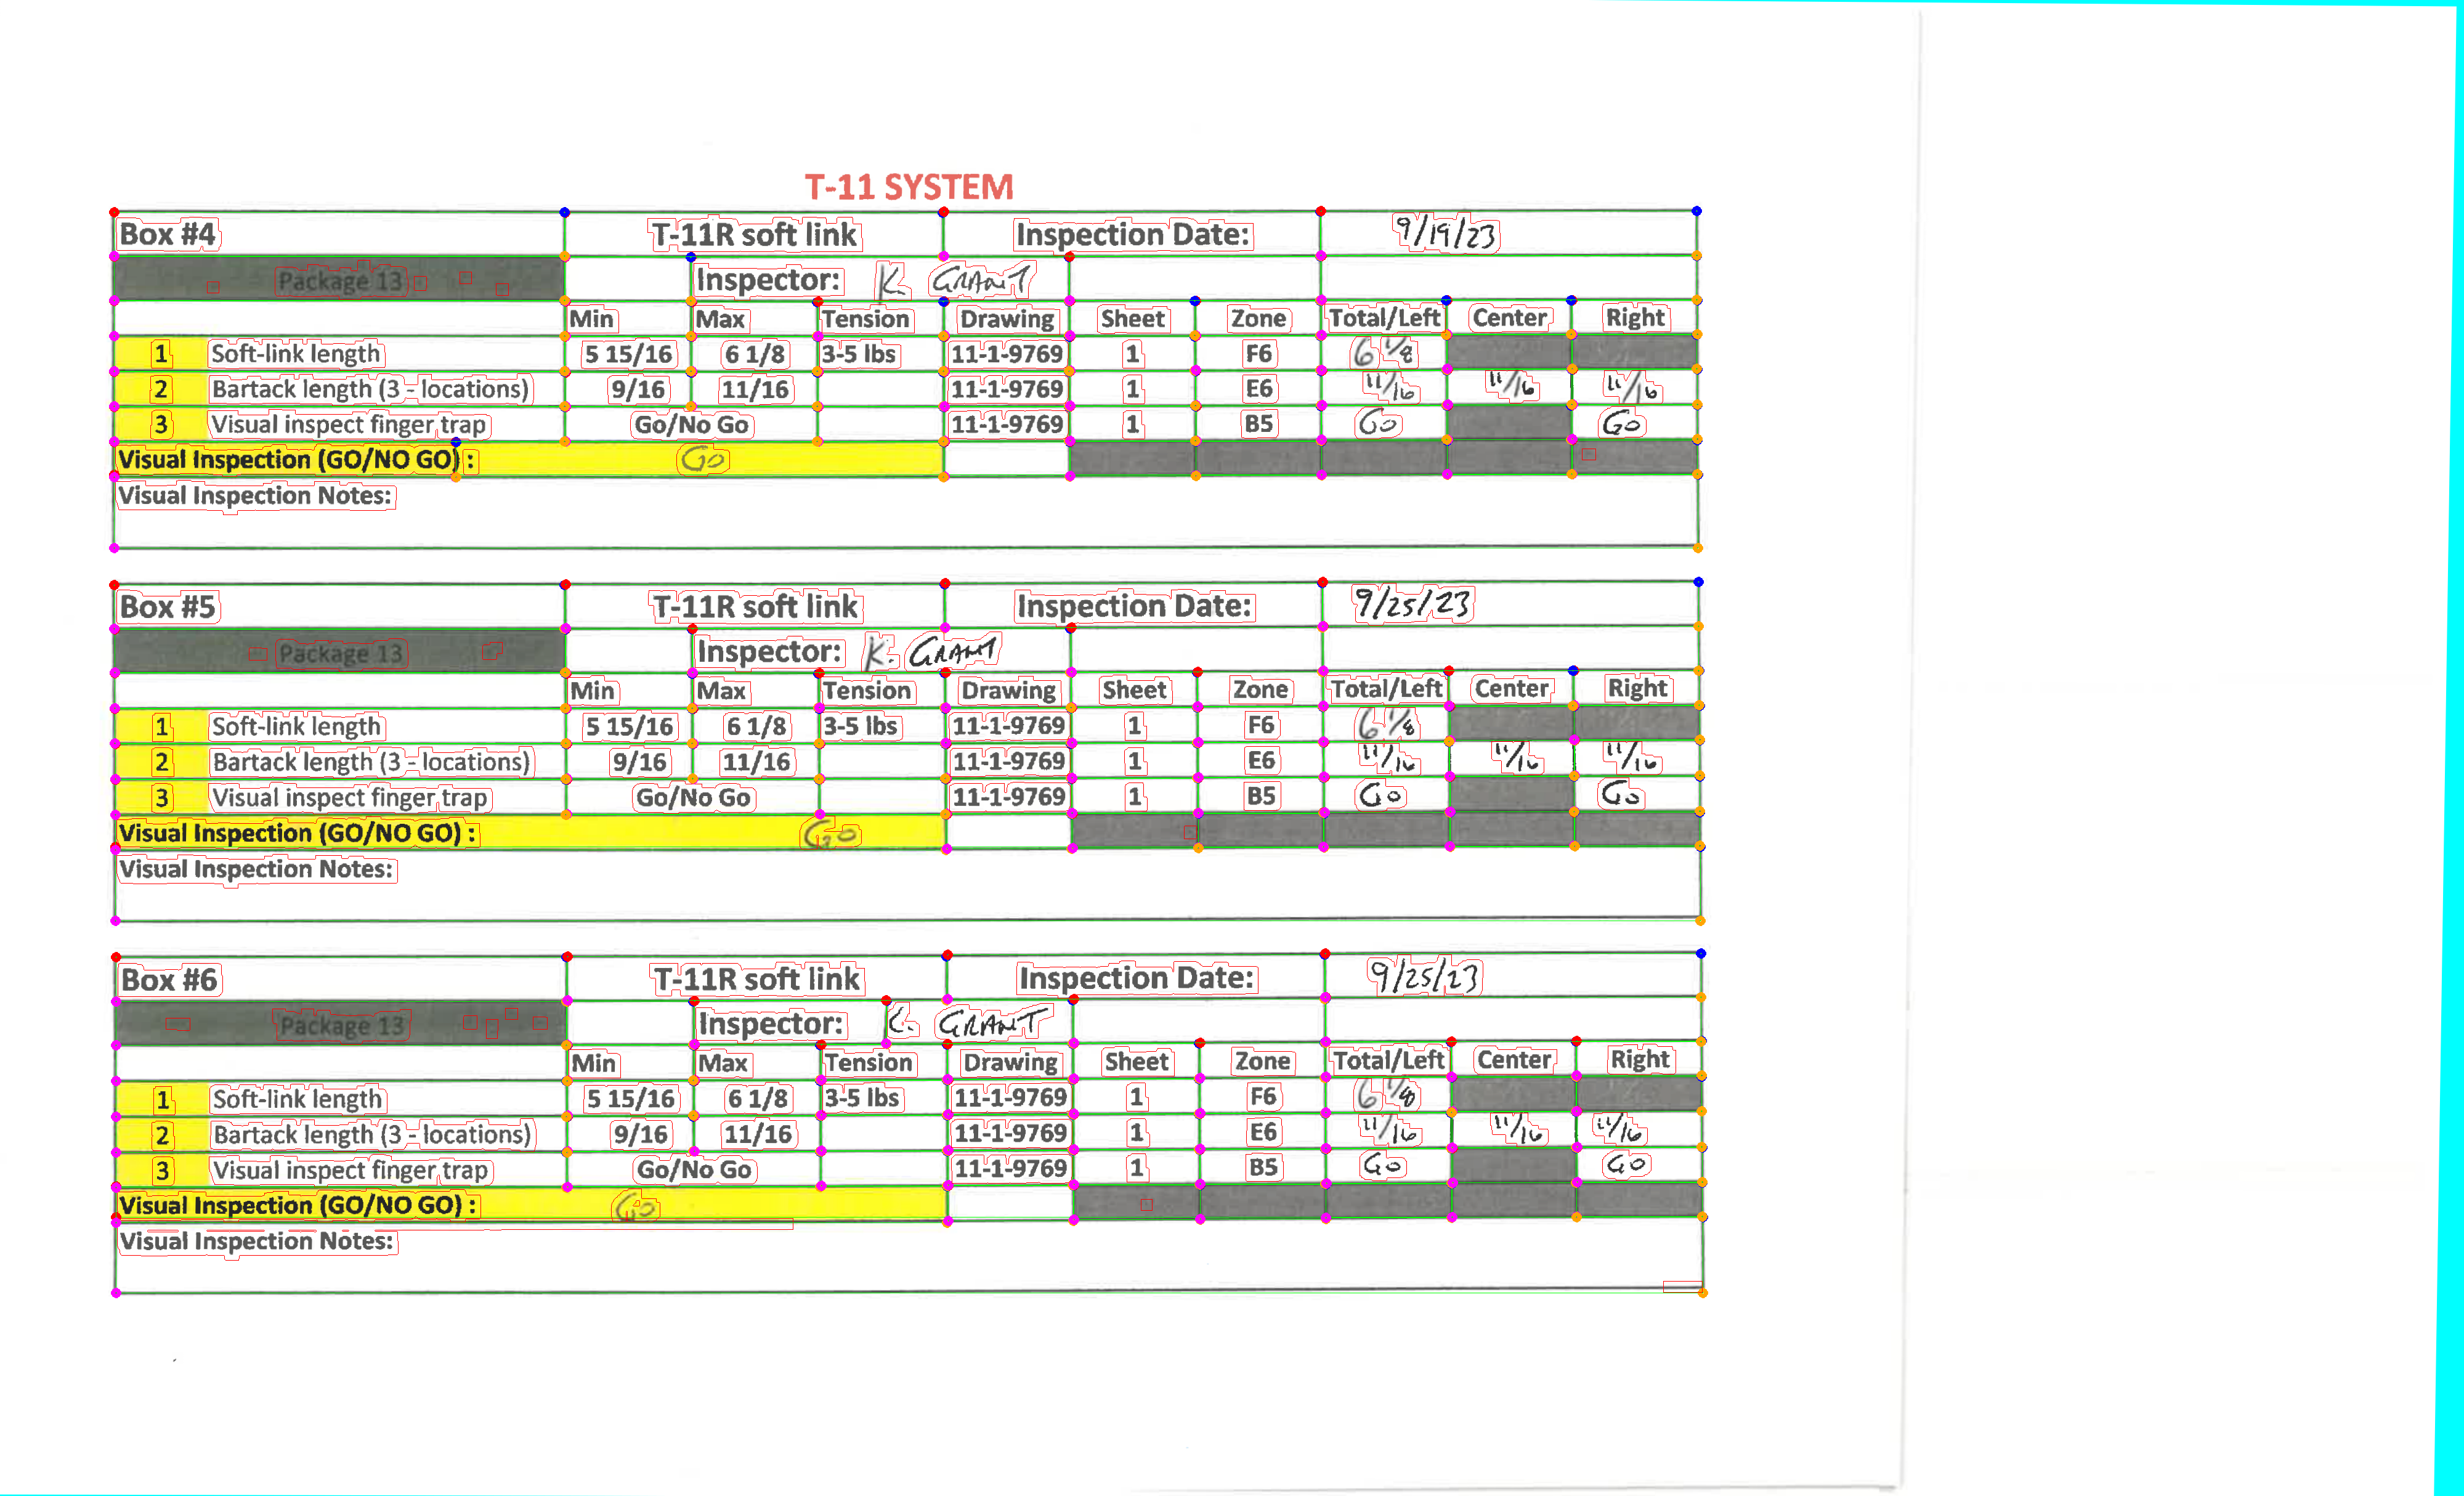 T-11 SYSTEM
Box #4 T-11R soft link Inspection Date: 9/19/23
Package 13 Inspector: K. GRANT
Min Max Tension Drawing Sheet Zone Total/Left Center Right
1 Soft-link length 5 15/16 6 1/8 3-5 lbs 11-1-9769 1 F6 6 1/8
2 Bartack length (3 - locations) 9/16 11/16 11-1-9769 1 E6 11/16 11/16 11/16
3 Visual inspect finger trap Go/No Go 11-1-9769 1 B5 GO GO
Visual Inspection (GO/NO GO) : GO
Visual Inspection Notes:
Box #5 T-11R soft link Inspection Date: 9/25/23
Package 13 Inspector: K. GRANT
Min Max Tension Drawing Sheet Zone Total/Left Center Right
1 Soft-link length 5 15/16 6 1/8 3-5 lbs 11-1-9769 1 F6 6 1/8
2 Bartack length (3 - locations) 9/16 11/16 11-1-9769 1 E6 11/16 11/16 11/16
3 Visual inspect finger trap Go/No Go 11-1-9769 1 B5 GO GO
Visual Inspection (GO/NO GO) : GO
Visual Inspection Notes:
Box #6 T-11R soft link Inspection Date: 9/25/23
Package 13 Inspector: K. GRANT
Min Max Tension Drawing Sheet Zone Total/Left Center Right
1 Soft-link length 5 15/16 6 1/8 3-5 lbs 11-1-9769 1 F6 6 1/8
2 Bartack length (3 - locations) 9/16 11/16 11-1-9769 1 E6 11/16 11/16 11/16
3 Visual inspect finger trap Go/No Go 11-1-9769 1 B5 GO GO
Visual Inspection (GO/NO GO) : GO
Visual Inspection Notes: